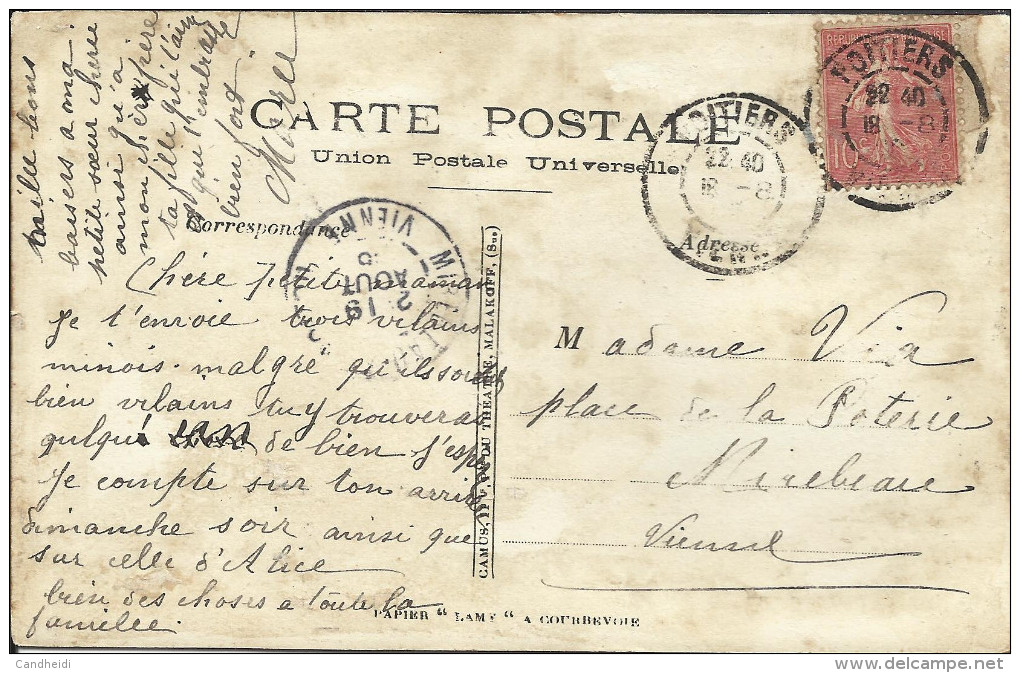 CARTE POSTALE
Union Postale Universelle
Correspondance
Adresse
RÉPUBLIQUE FRANÇAISE
10
POITIERS
22 40
18 - 8
POITIERS
22 40
18 - 8
MIREBEAU
VIENNE
19
AOUT
Chère petite maman
Je t'envoie trois vilains
minois malgré qu'ils sont
bien vilains tu y trouveras
quelqu'
de bien j'esp
Je compte sur ton arrivée
dimanche soir ainsi que
sur celle d'Alice
bien des choses a toute la
famille.
mille bons
baisers a ma
petite soeur cherie
ainsi qu'a
mon cher frère
ta fille qui t'aime
et qui t'embrasse
bien fort
Marie
Madame Via
place de la Poterie
Mirebeau
Vienne
CAMUS, 11 DU THEATRE, MALAKOFF, (Sne)
PAPIER "LAMY" A COURBEVOIE
Candheidi
www.delcampe.net